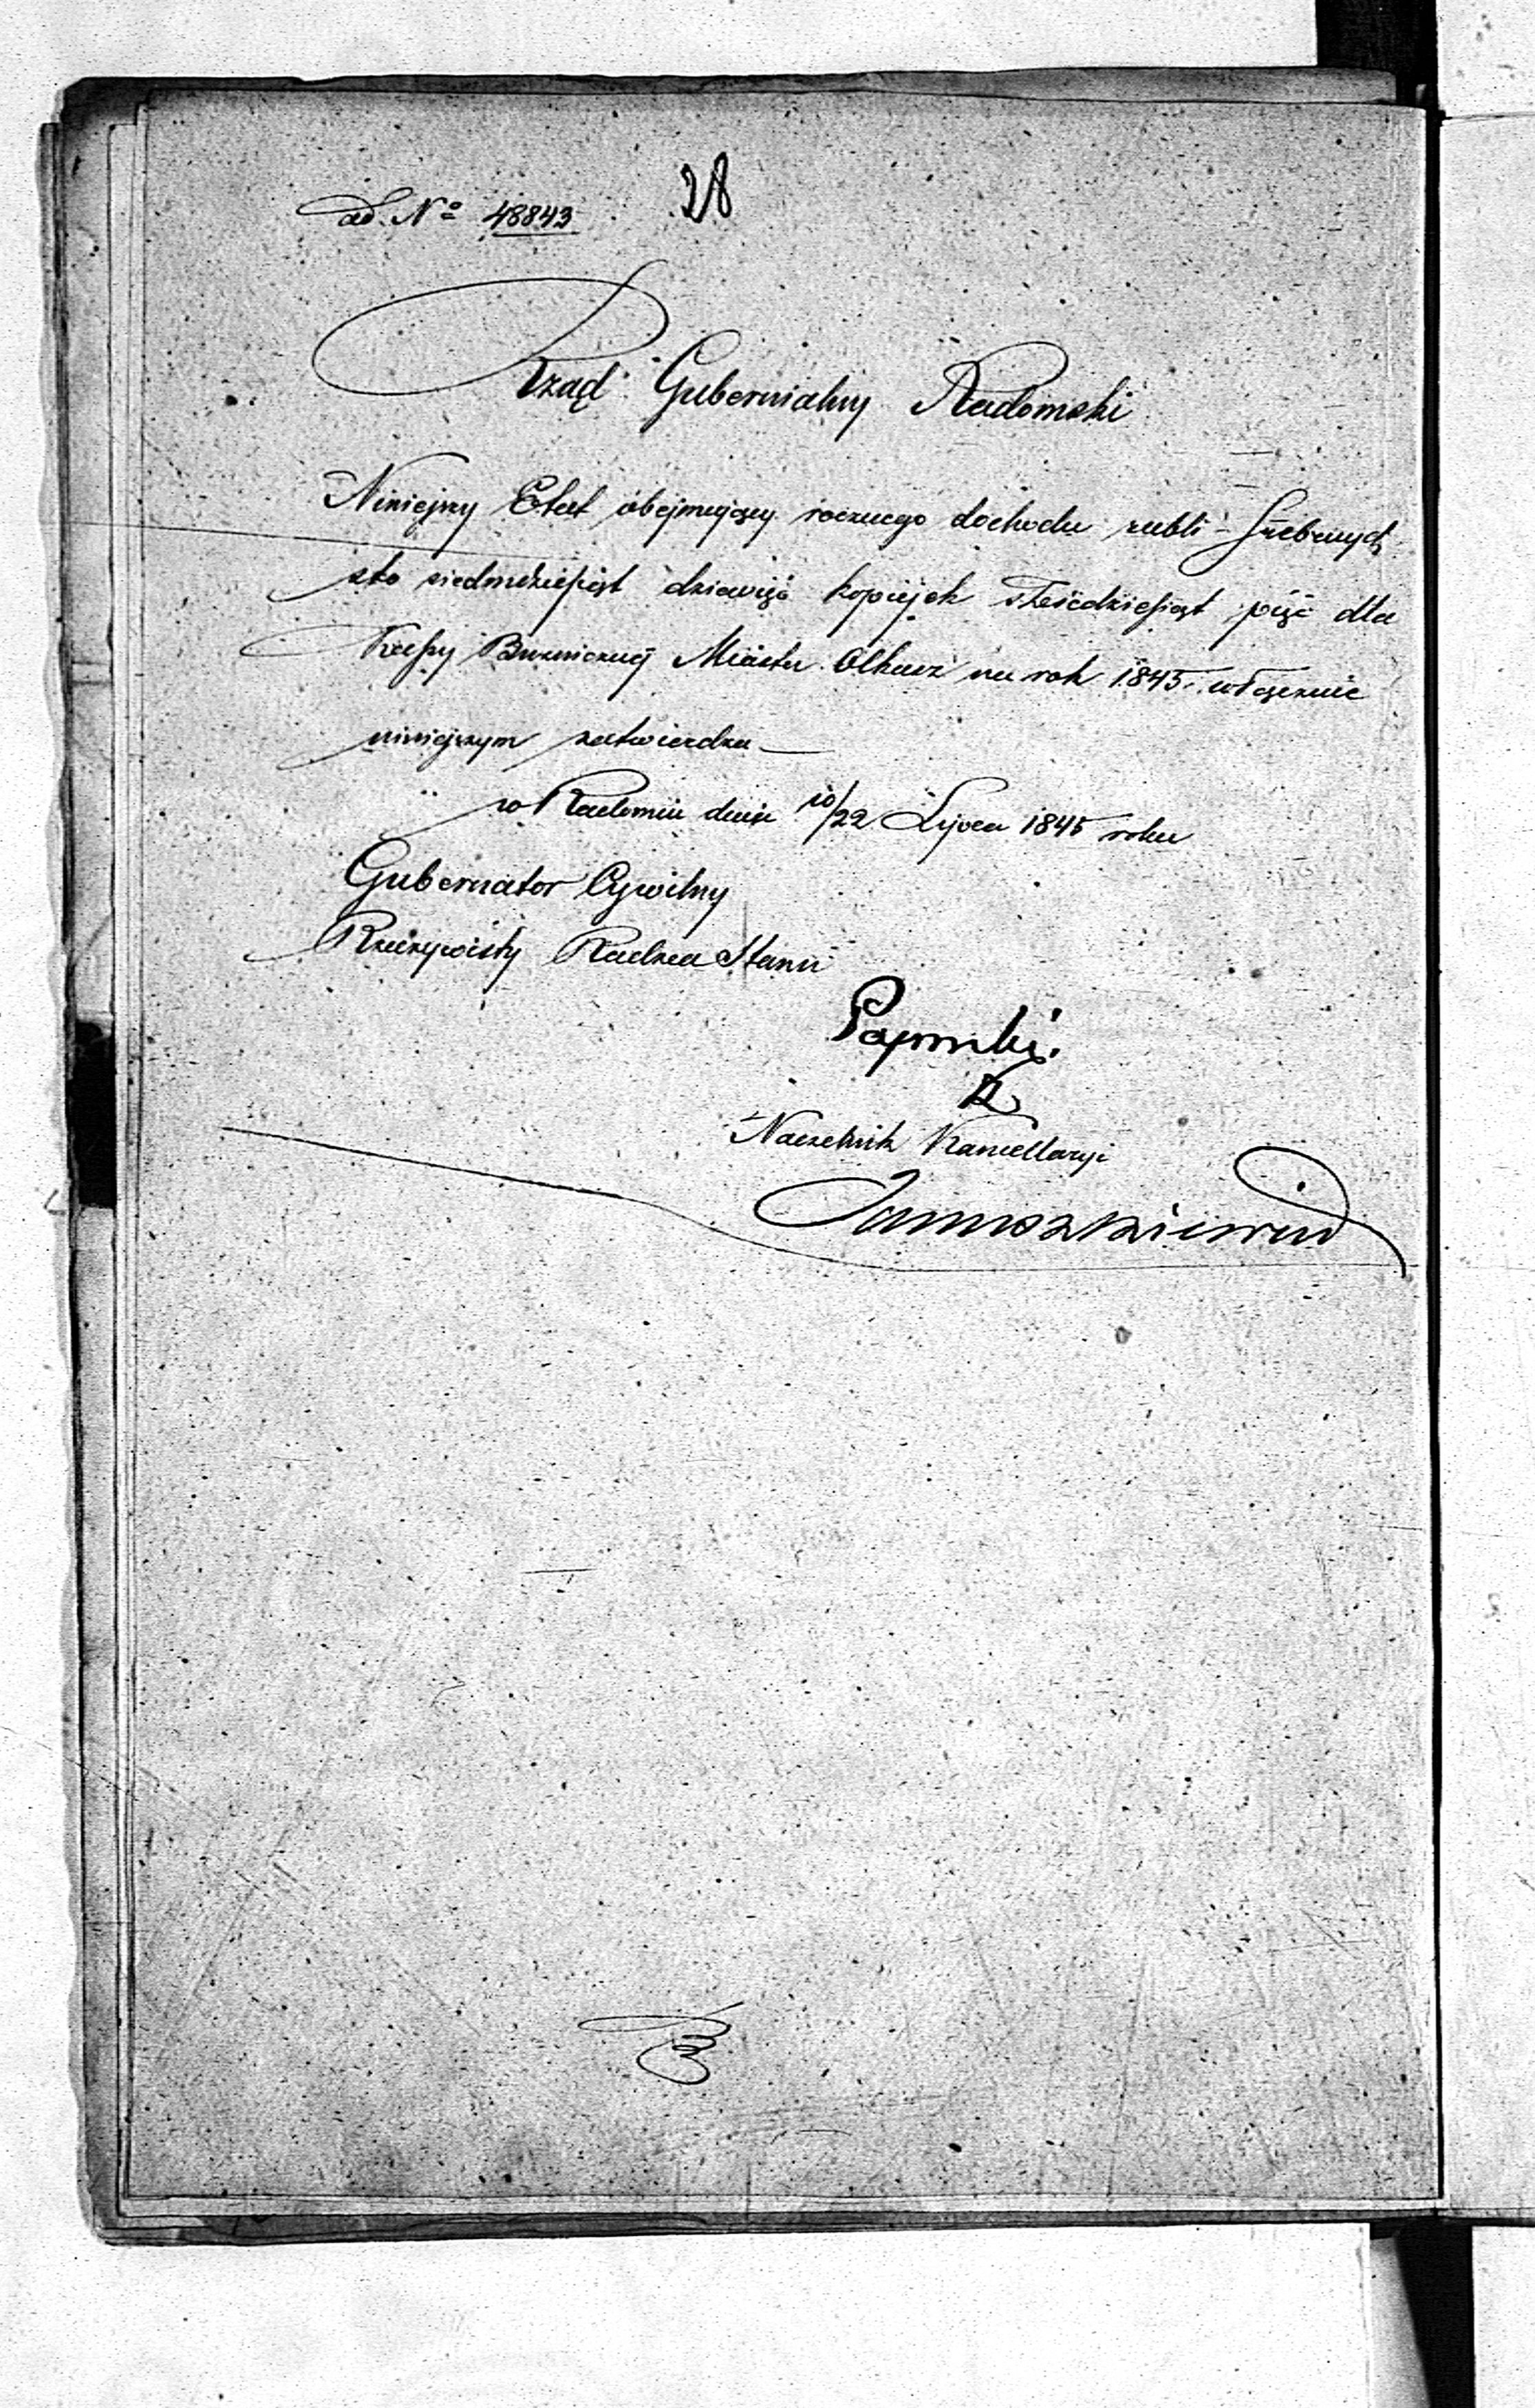 ad. No 48843
28
Rząd Gubernialny Radomski
Niniejszy Etat obejmujący rocznego dochodu rubli Srebrnych
sto siedmdziesiąt dziewięć kopiejek sześćdziesiąt pięć dla
Kassy Bożniczney Miasta Olkusz na rok 1845 włącznie
niniejszym zatwierdza
w Radomiu dnia 10/22 Lipca 1845 roku
Gubernator Cywilny
Rzeczywisty Radzca Stanu
Naczelnik Kancellaryi